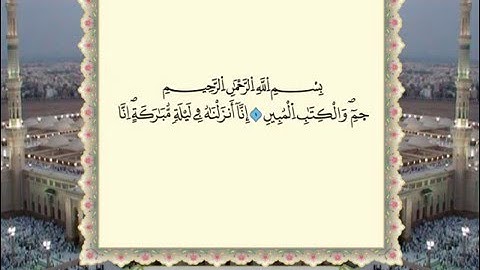 بِسْمِ اللَّهِ الرَّحْمَٰنِ الرَّحِيمِ
حمٓ ۚ وَالْكِتَابِ الْمُبِينِ ١ إِنَّا أَنْزَلْنَاهُ فِي لَيْلَةٍ مُبَارَكَةٍ ۚ إِنَّا